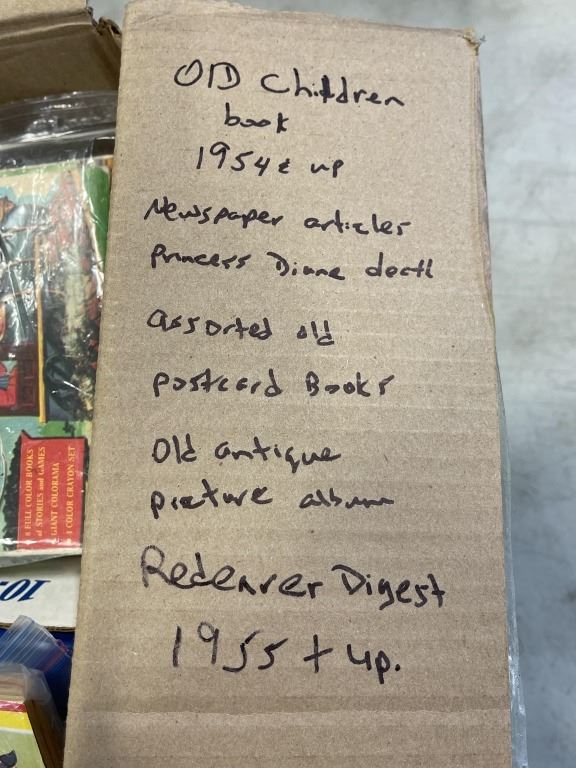 OlD Children
book
1954 & up
Newspaper articles
Princess Diane death
assorted old
postcard Books
Old antique
picture album
Redearer Digest
1955 + up.
FULL COLOR BOOKS
of STORIES and GAMES
GIANT COLORAMA
COLOR CRAYON SET